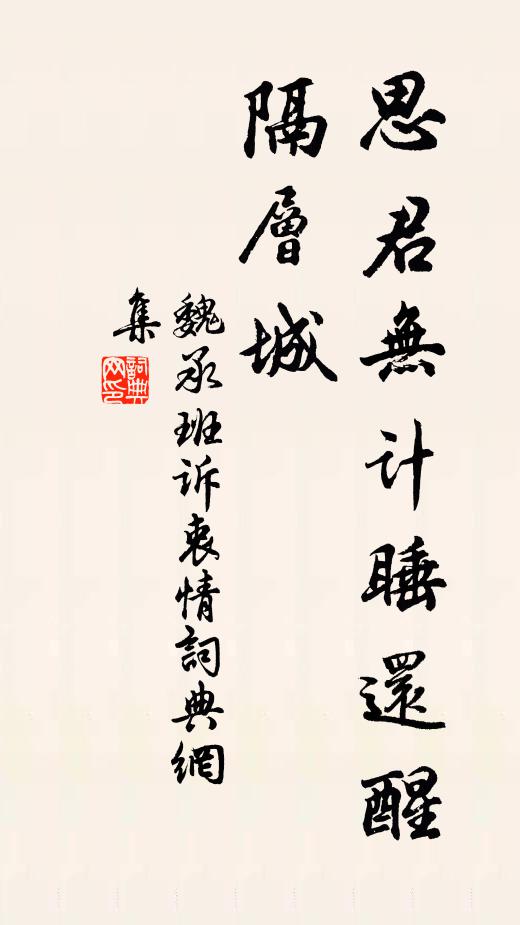 思君無計睡還醒
隔層城
魏承班訴衷情詞典網
集
詞典網印